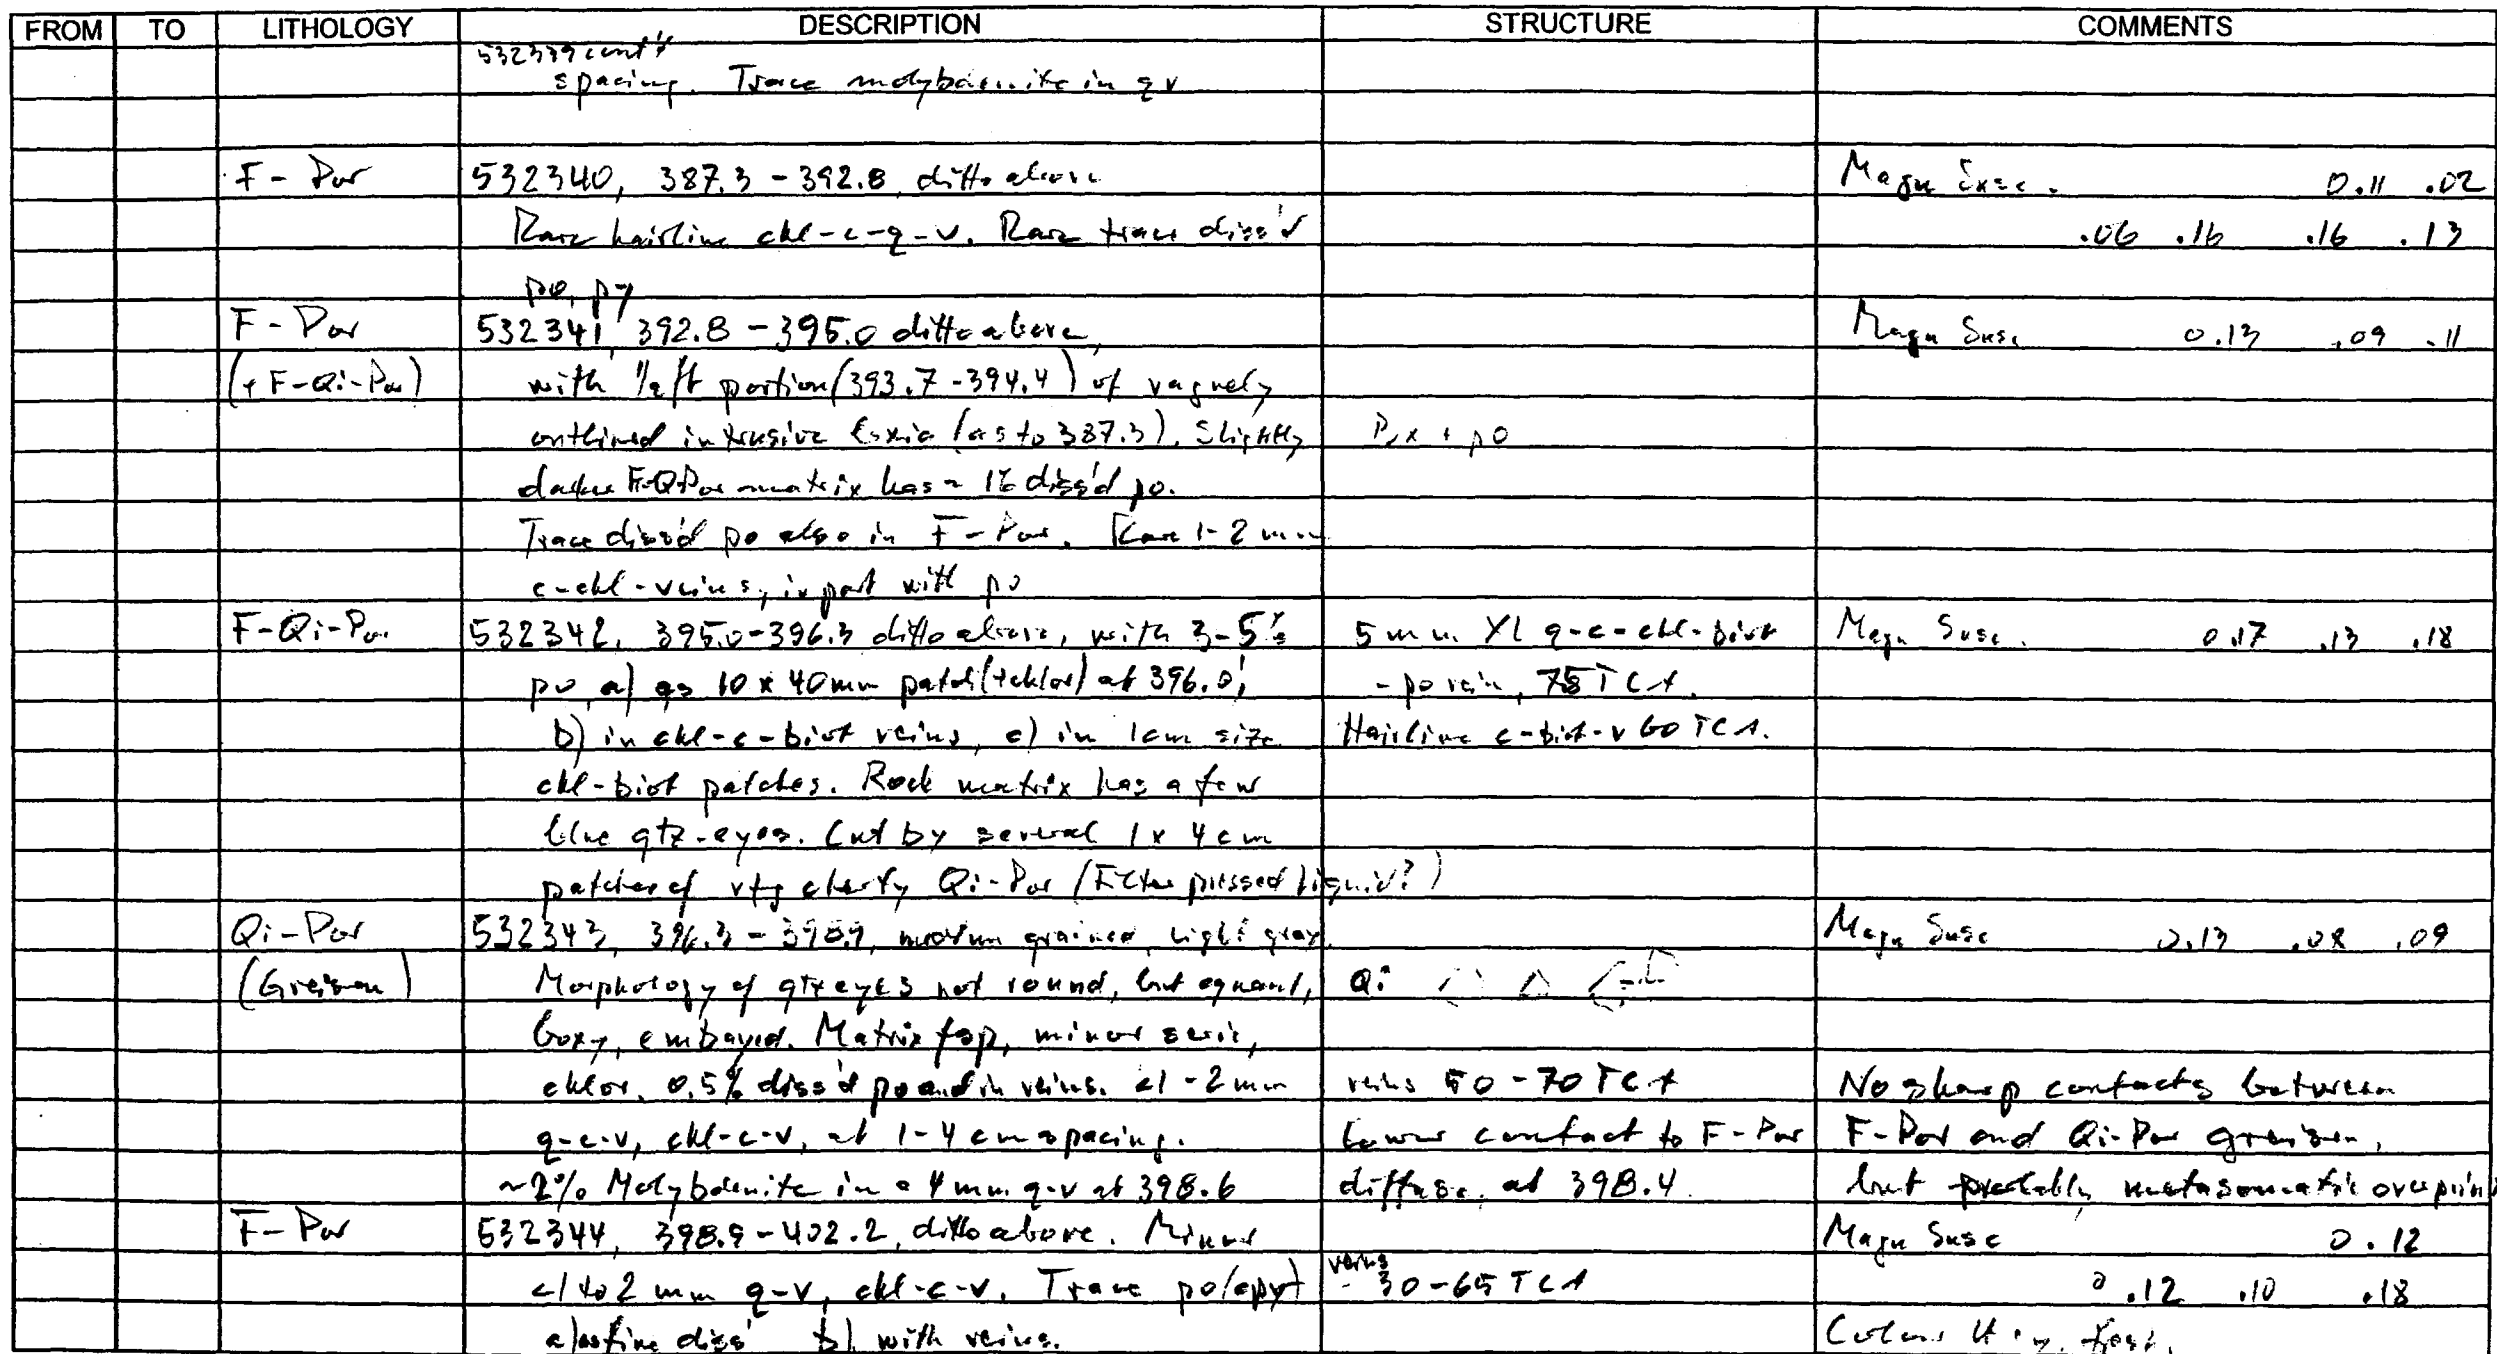 FROM TO LITHOLOGY DESCRIPTION STRUCTURE COMMENTS
532339 cont'd
spacing. Trace molybdenite in q v
F-Por 532340, 387.3-392.8, ditto above Magn Susc. 0.11 .02
Rare hairline chl-c-q-v. Rare trace diss'd .06 .16 .16 .13
po, py
F-Por 532341, 392.8-395.0 ditto above, Magn Susc 0.13 .09 .11
(+ F-Qi-Por) with 1/2 ft portion (393.7-394.4) of vaguely
outlined intrusive (as to 387.3). Slightly + po
darker F-Q-Por matrix has ~ 1% diss'd po.
Trace diss'd po also in F-Por. Rare 1-2 mm
c-chl-veins, in part with po
F-Qi-Por 532342, 395.0-396.3 ditto above, with 3-5% 5 mm XL q-c-chl-biot Magn Susc. 0.17 .13 .18
po, a) as 10 x 40mm patch (+chlor) at 396.0; -po vein, 75 TCA.
b) in chl-c-biot veins, c) in 1cm size Hairline c-biot-v 60 TCA.
chl-biot patches. Rock matrix has a few
blue qtz-eyes. Cut by several 1 x 4 cm
patches of vfg cherty Qi-Por (Filter pressed liquid?)
Qi-Por 532343, 396.3-398.9, medium grained, light gray. Magn Susc 0.13 .08 .09
(Greisen) Morphology of qtz eyes not round, but equant, Qi
boxy, embayed. Matrix fsp, minor seric,
chlor. 0.5% diss'd po and in veins. <1-2mm veins 50-70 TCA No sharp contacts between
q-c-v, chl-c-v, at 1-4 cm spacing. Lower contact to F-Por F-Por and Qi-Por greisen,
~2% Molybdenite in a 4 mm q-v at 398.6 diffuse, at 398.4. but probably metasomatic overprint
F-Por 532344, 398.9-402.2, ditto above. Minor Magn Susc 0.12
<1 to 2 mm q-v, chl-c-v. Trace po(cpy) veins 30-65 TCA 0.12 .10 .18
a) as fine diss' b) with veins.